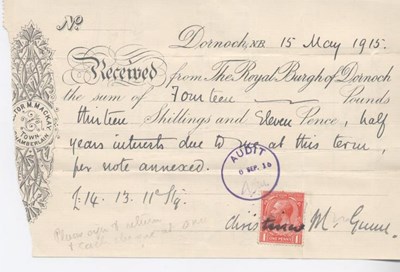 No.
Dornoch, N.B. 15 May 1915.
Received from The Royal Burgh of Dornoch
the sum of Fourteen Pounds
thirteen Shillings and Eleven Pence, half
years interests due to me at this term,
per note annexed.
£14. 13. 11 Stg.
Christina M. Gunn.
TOR M. MACKAY
TOWN
CHAMBERLAIN
AUDIT
8 SEP. 15
ONE PENNY
Please sign & return
at once